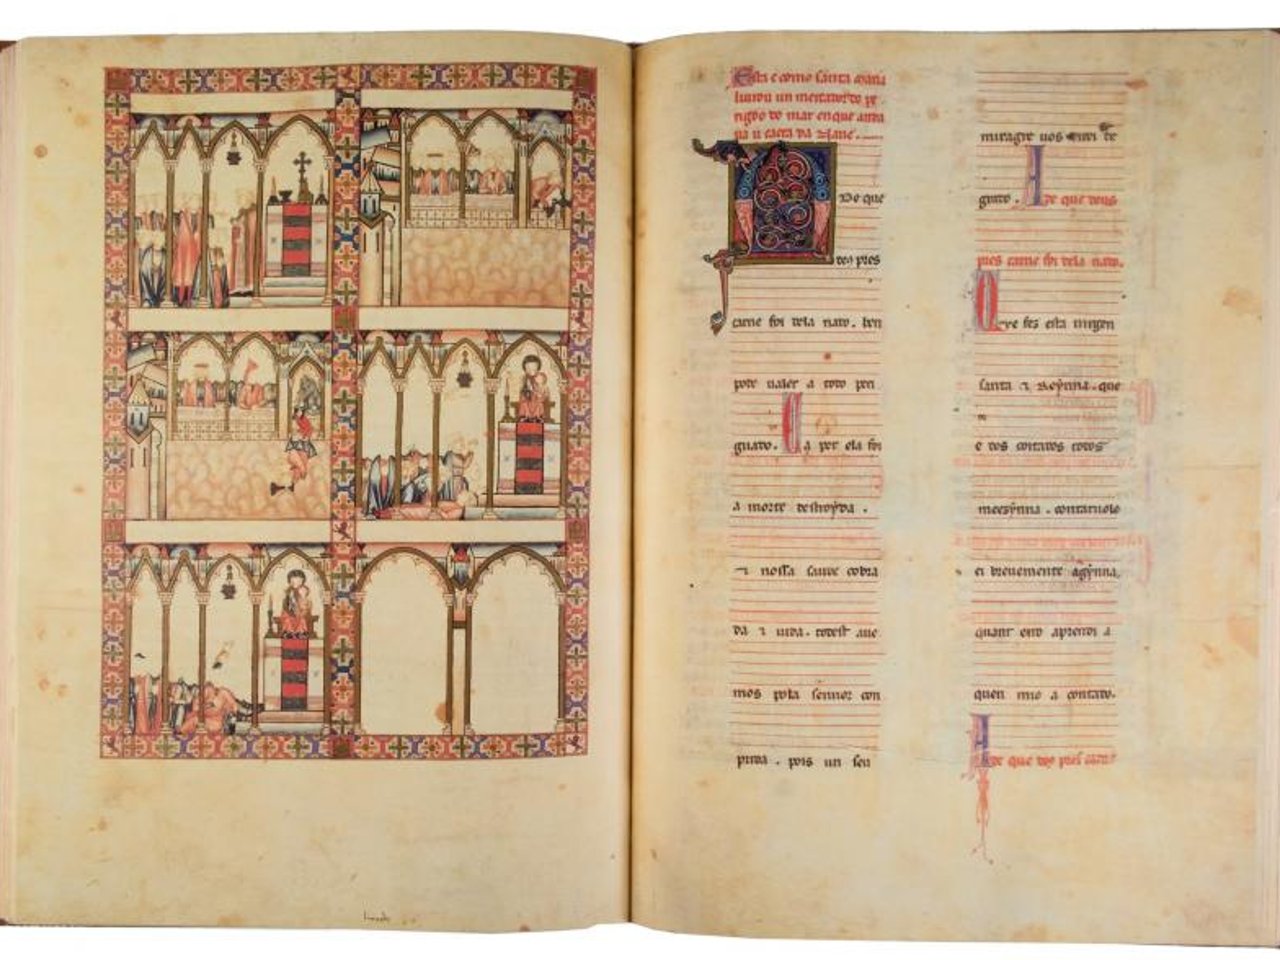 Esta e como santa maria
liurou un mercadeyro pe
rigoo do mar en que anda
ua
A De que
deus pres
carne foi dela nato. ben
pode ualer a todo peri
guado. Ca per ela foi
a morte destroyda.
⁊ nossa saude cobra
da ⁊ uida. todest aue
mos pola sennor con
prida. pois un seu
miragre uos
guado. A de que deus
pres carne foi dela nato.
Que fez esta uirgen
santa ⁊ Reynna. que
e dos coitados todos
meezynna. contaruolo
ei breuemente agynna,
quant end aprendi a
quen mio a contado.
A de que deus pres carne